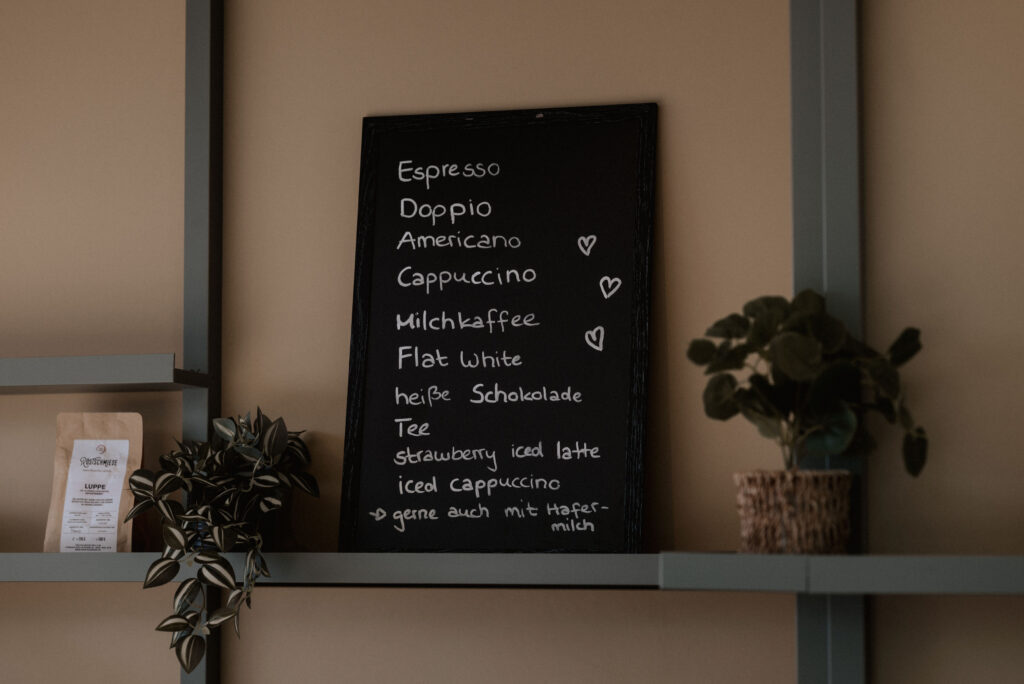 Espresso
Doppio
Americano
Cappuccino
Milchkaffee
Flat White
heiße Schokolade
Tee
strawberry iced latte
iced cappuccino
→ gerne auch mit Hafer-
milch
RÖSTSCHMIEDE
LUPPE